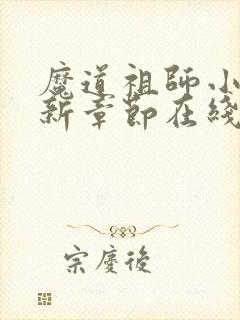 魔道祖師小
新章節在綫
宗慶後